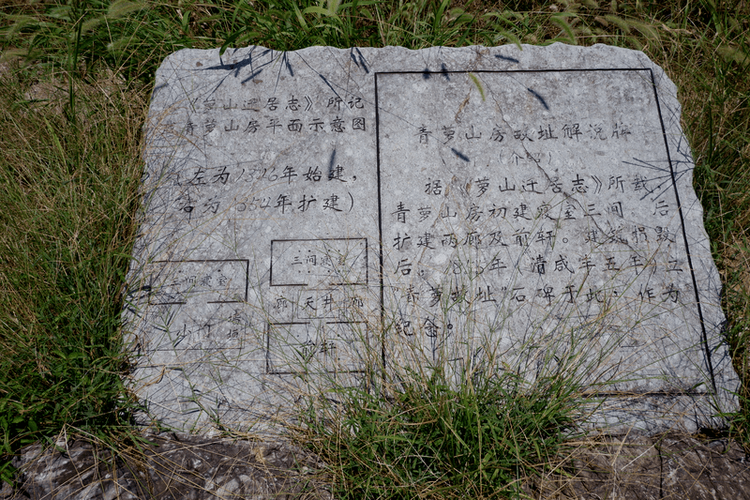 《萝山迁居志》所记
青萝山房平面示意图
(左为1343年始建,
右为1352年扩建)
三间寝室
三间寝室
廊 天井 廊
前轩
青萝山房故址解说牌
(介绍)
据《萝山迁居志》所载,
青萝山房初建寝室三间 后
扩建两廊及前轩。建筑损毁
后, 年(清咸丰五年)立
"青萝故址"石碑于此,作为
纪念。